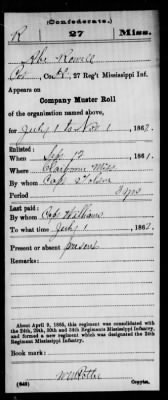 (Confederate.)
R 27 Miss.
Abe Rowell
Co. , 27 Reg't Mississippi Inf.
Appears on
Company Muster Roll
of the organization named above,
for July 1 to Nov 1, 1862.
Enlisted:
When Sept 12, 1861.
Where Claiborne Miss
By whom Capt
Period 3 yrs
Last paid:
By whom Capt Williams
To what time July 1, 1862.
Present or absent present
Remarks:
About April 9, 1865, this regiment was consolidated with
the 24th, 29th, 30th and 34th Regiments Mississippi Infantry,
and formed a new regiment which was designated the 24th
Regiment Mississippi Infantry.
Book mark:
(642) Copyist.